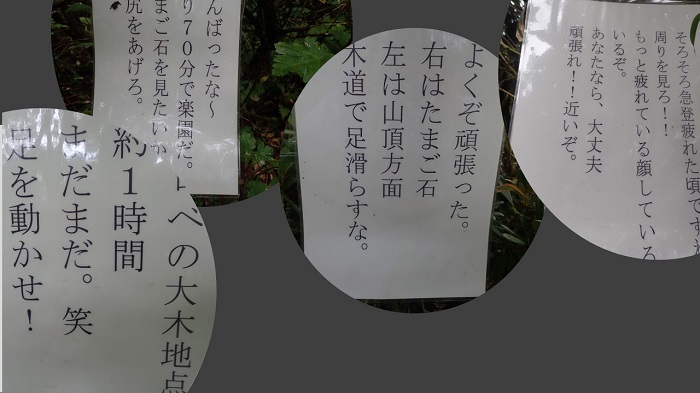 んばったな～
り70分で楽園だ。
まごを見たいか
尻をあげろ。
べの大木地点
約1時間
まだまだ。笑
足を動かせ！
よくぞ頑張った。
右はたまご石
左は山頂方面
木道で足滑らすな。
そろそろ急登疲れた頃ですな
周りを見ろ！！
もっと疲れている顔している
いるぞ。
あなたなら、大丈夫
頑張れ！！近いぞ。